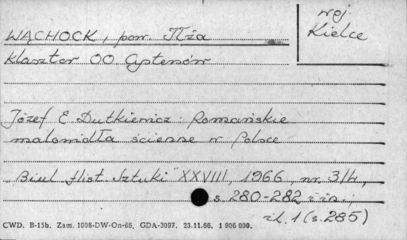 WĄCHOCK, pow. Iłża
woj.
Kielce
Klasztor OO. Cystersów
Józef E. Dutkiewicz: Romańskie
malowidła ścienne w Polsce
Biul. Hist. Sztuki XXVIII, 1966, nr. 3/4,
s. 280-282 i in.,
il. 1 (s. 285)
CWD. B-15b. Zam. 1098-DW-On-66, GDA-3097. 23.11.66. 1 906 000.